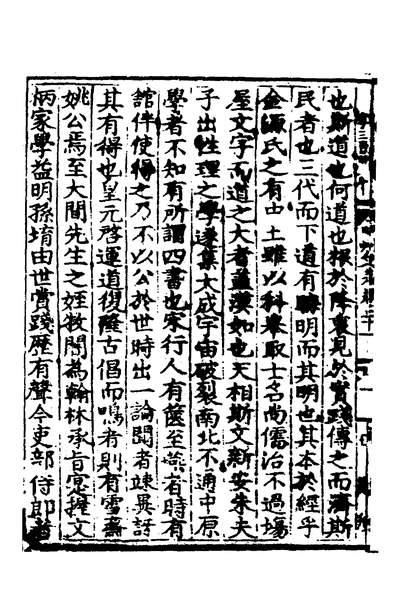 也斯道也何道也根於降衷見於實踐傳之而濟斯
民者也三代而下道有晦明而其明也其本於經乎
金源氏之有中土雖以科舉取士名尚儒治不過場
屋文字而道之大者蓋漠如也天相斯文新安朱夫
子出性理之學遂集大成宇宙破裂南北不通中原
學者不知有所謂四書也宋行人有篋至燕者時有
館伴使得之乃不以公於世時出一論聞者竦異訝
其有得也皇元啓運道復隆古倡而鳴者則有雪齋
姚公焉至大間先生之姪牧闇為翰林承旨寔擅文
柄家學益明孫堉由世賞踐歷有聲今吏部侍郎